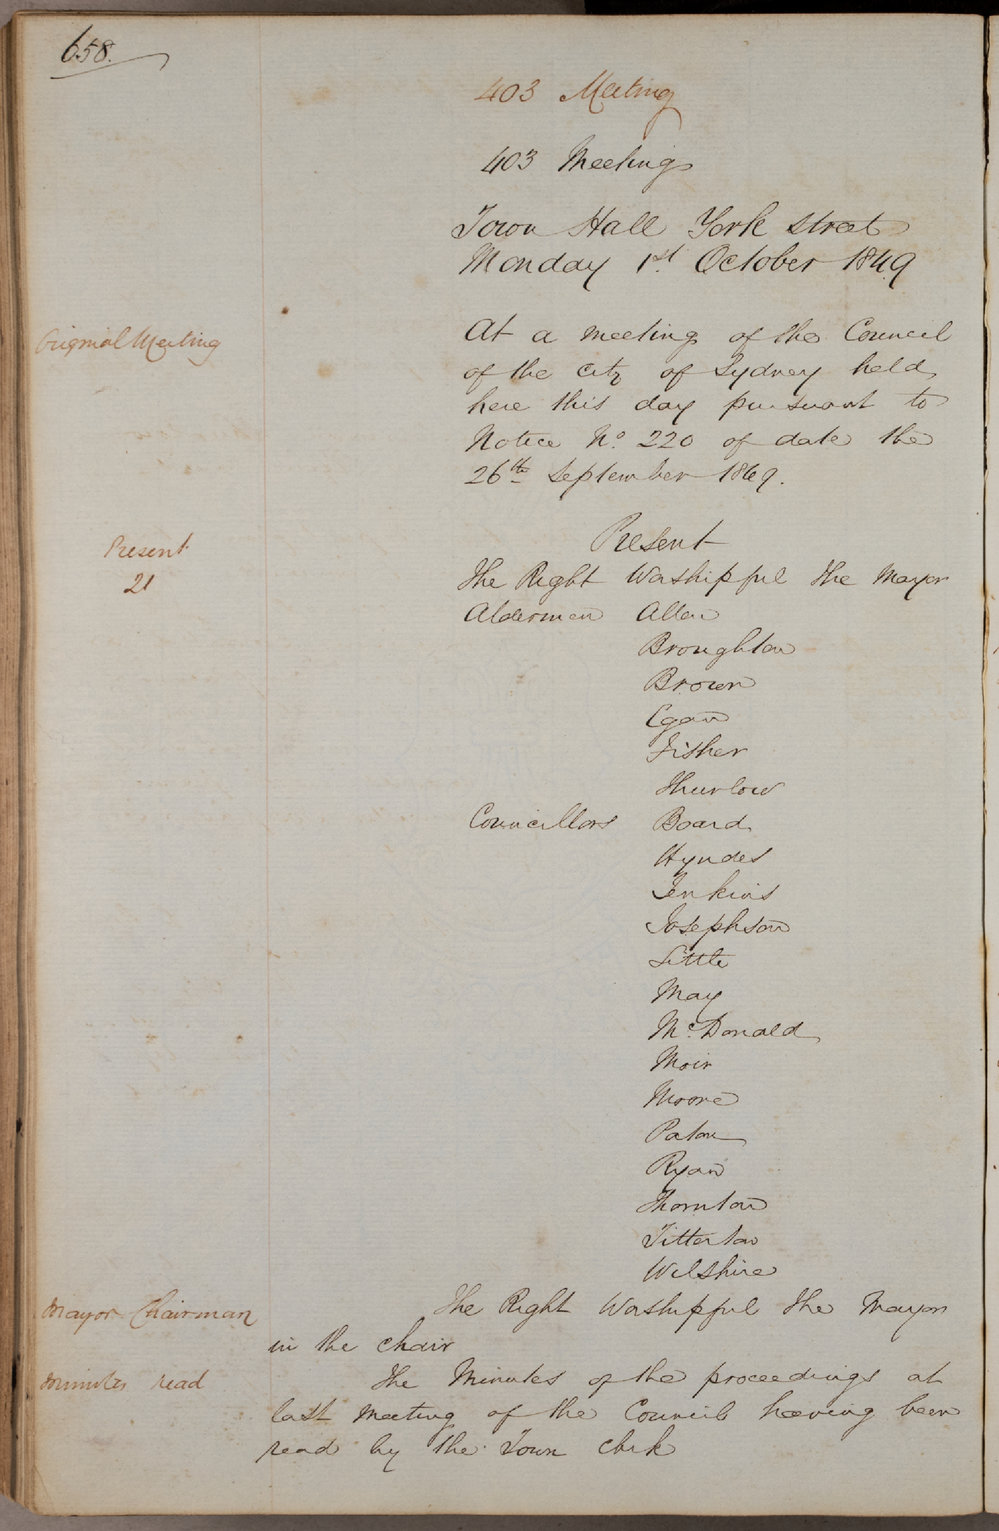 658.
403 Meeting
403 Meeting
Town Hall York Street
Monday 1st. October 1849
Original Meeting
At a meeting of the Council
of the City of Sydney held
here this day pursuant to
Notice No. 220 of date the
26th September 1849.
Present
21
Present
The Right Worshipful the Mayor
Aldermen Allen
Broughton
Brown
Egan
Fisher
Thurlow
Councillors Board
Hyndes
Jenkins
Josephson
Little
May
McDonald
Moir
Moore
Paton
Ryan
Thornton
Titterton
Wilshire
Mayor Chairman
The Right Worshipful the Mayor
in the chair
Minutes read
The Minutes of the proceedings at
last Meeting of the Council having been
read by the Town Clerk